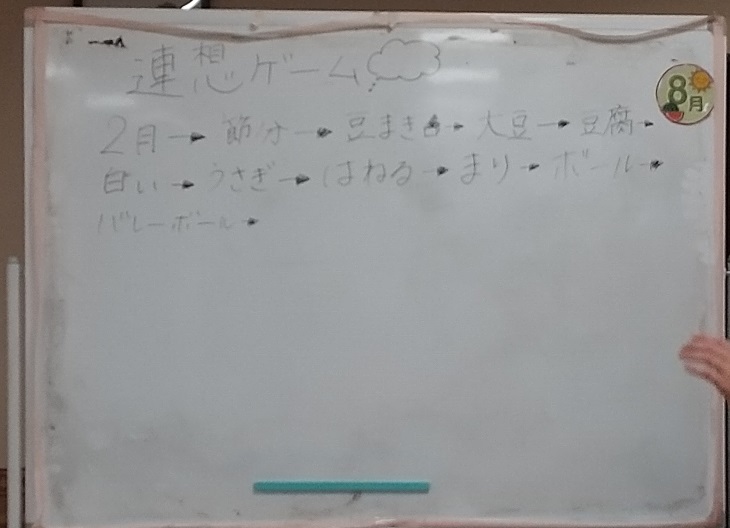 連想ゲーム
8月
2月→節分→豆まき→大豆→豆腐→
白い→うさぎ→はねる→まり→ボール→
バレーボール→